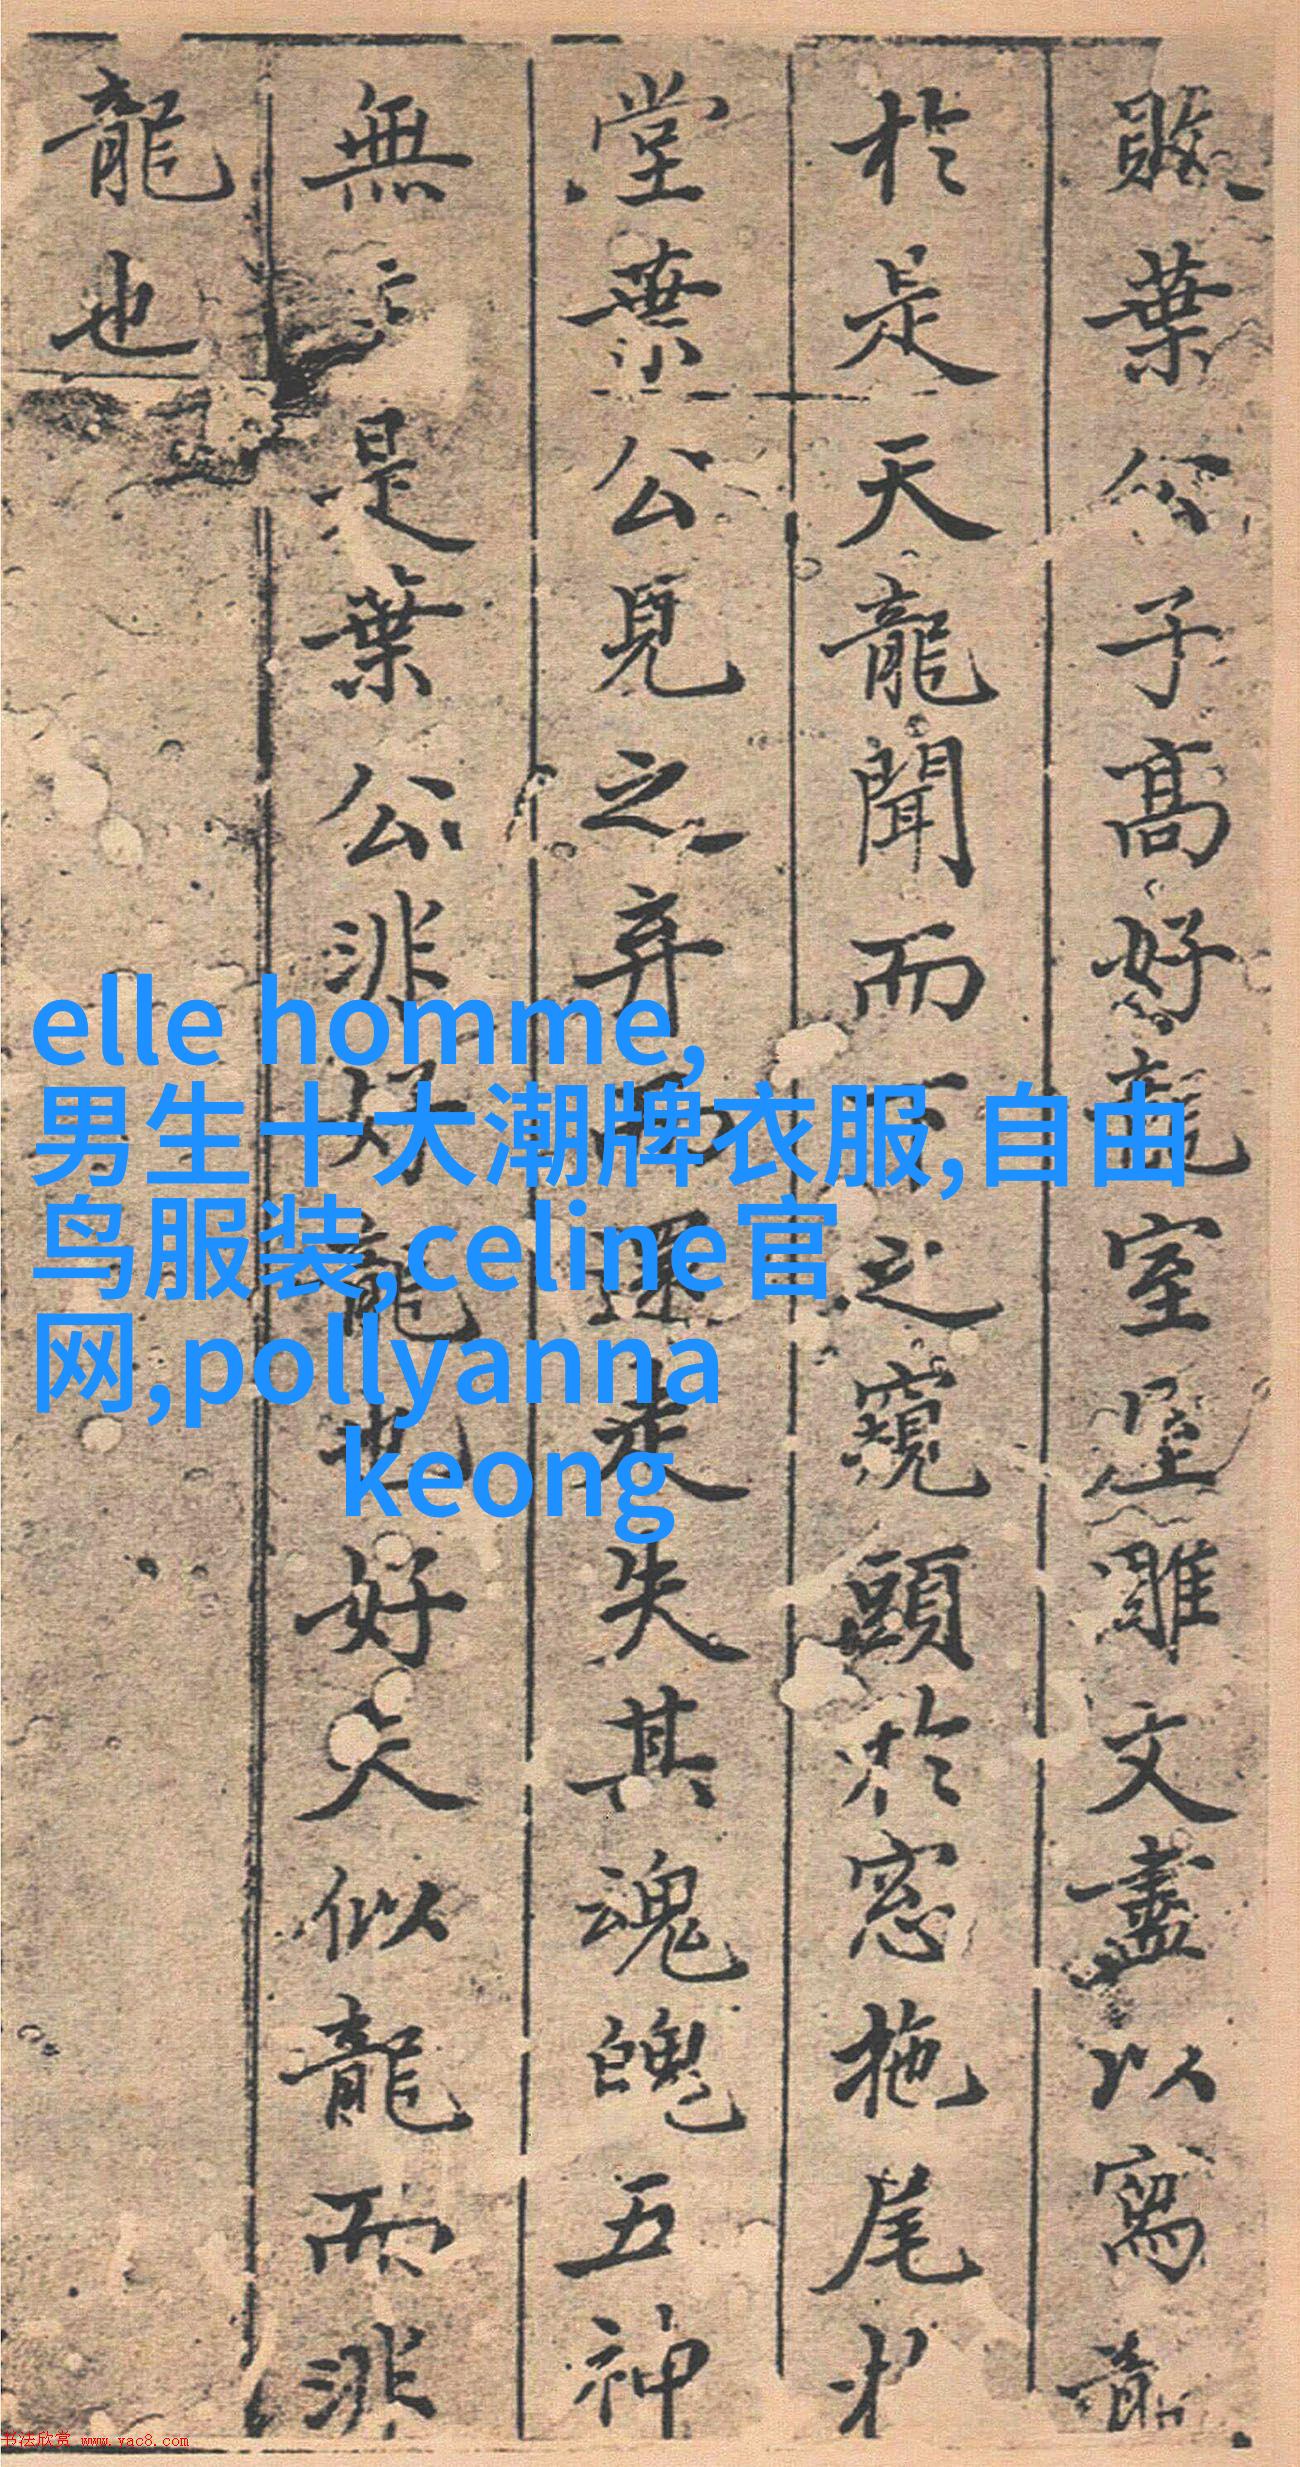 敗葉公子高好龍室堊雕文盡以寫龍
於是天龍聞而下之窺頭於窓拖尾
堂葉公見之弃而還走失其魂魄五神
無主是葉公非好龍也好夫似龍而非
龍也
elle homme,
男生十大潮牌衣服,自由
鸟服装,celine官
网,pollyanna
keong
书法欣赏 www.yac8.com